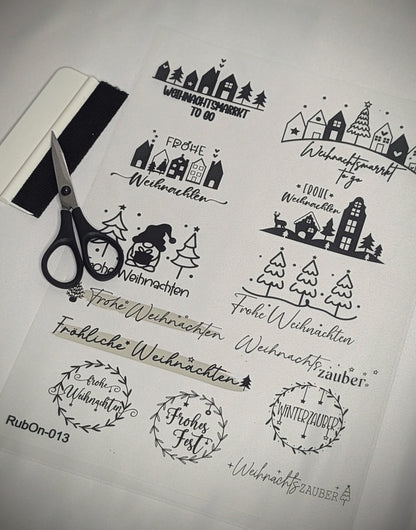 WEIHNACHTSMARKT
TO GO
Weihnachtsmarkt
to go
FROHE
Weihnachten
FROHE
Weihnachten
Frohe Weihnachten
Frohe Weihnachten
Frohe Weihnachten
Fröhliche Weihnachten
Weihnachts
zauber
frohe
Weihnachten
Frohes
Fest
WINTERZAUBER
RubOn-013
Weihnachts ZAUBER